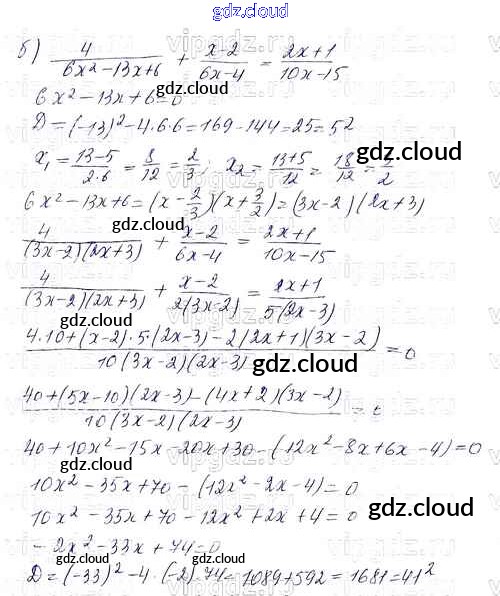 gdz.cloud
5) 4/(6x²-13x+6) + (x-2)/(6x-4) = (2x+1)/(10x-15)
6x²-13x+6=0
D=(-13)²-4·6·6=169-144=25=5²
x₁=(13-5)/(2·6)=8/12=2/3; x₂=(13+5)/12=18/12=3/2
gdz.cloud
6x²-13x+6=(x-2/3)(x+3/2)=(3x-2)(2x+3)
4/((3x-2)(2x+3)) + (x-2)/(6x-4) = (2x+1)/(10x-15)
gdz.cloud
4/((3x-2)(2x+3)) + (x-2)/(2(3x-2)) = (2x+1)/(5(2x-3))
(4·10+(x-2)·5·(2x-3)-2(2x+1)(3x-2))/(10(3x-2)(2x-3)) = 0
gdz.cloud
(40+(5x-10)(2x-3)-(4x+2)(3x-2))/(10(3x-2)(2x-3)) =
gdz.cloud
40+10x²-15x-20x+30-(12x²-8x+6x-4)=0
10x²-35x+70-(12x²-2x-4)=0
10x²-35x+70-12x²+2x+4=0
gdz.cloud
-2x²-33x+74=0
gdz.cloud gdz.cloud
D=(-33)²-4·(-2)·74=1089+592=1681=41²